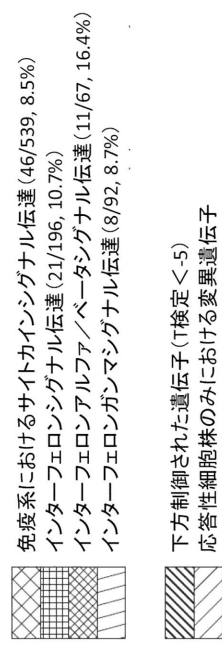 免疫系におけるサイトカインシグナル伝達(46/539, 8.5%)
インターフェロンシグナル伝達(21/196, 10.7%)
インターフェロンアルファ／ベータシグナル伝達(11/67, 16.4%)
インターフェロンガンマシグナル伝達(8/92, 8.7%)
下方制御された遺伝子(T検定<-5)
応答性細胞株のみにおける変異遺伝子